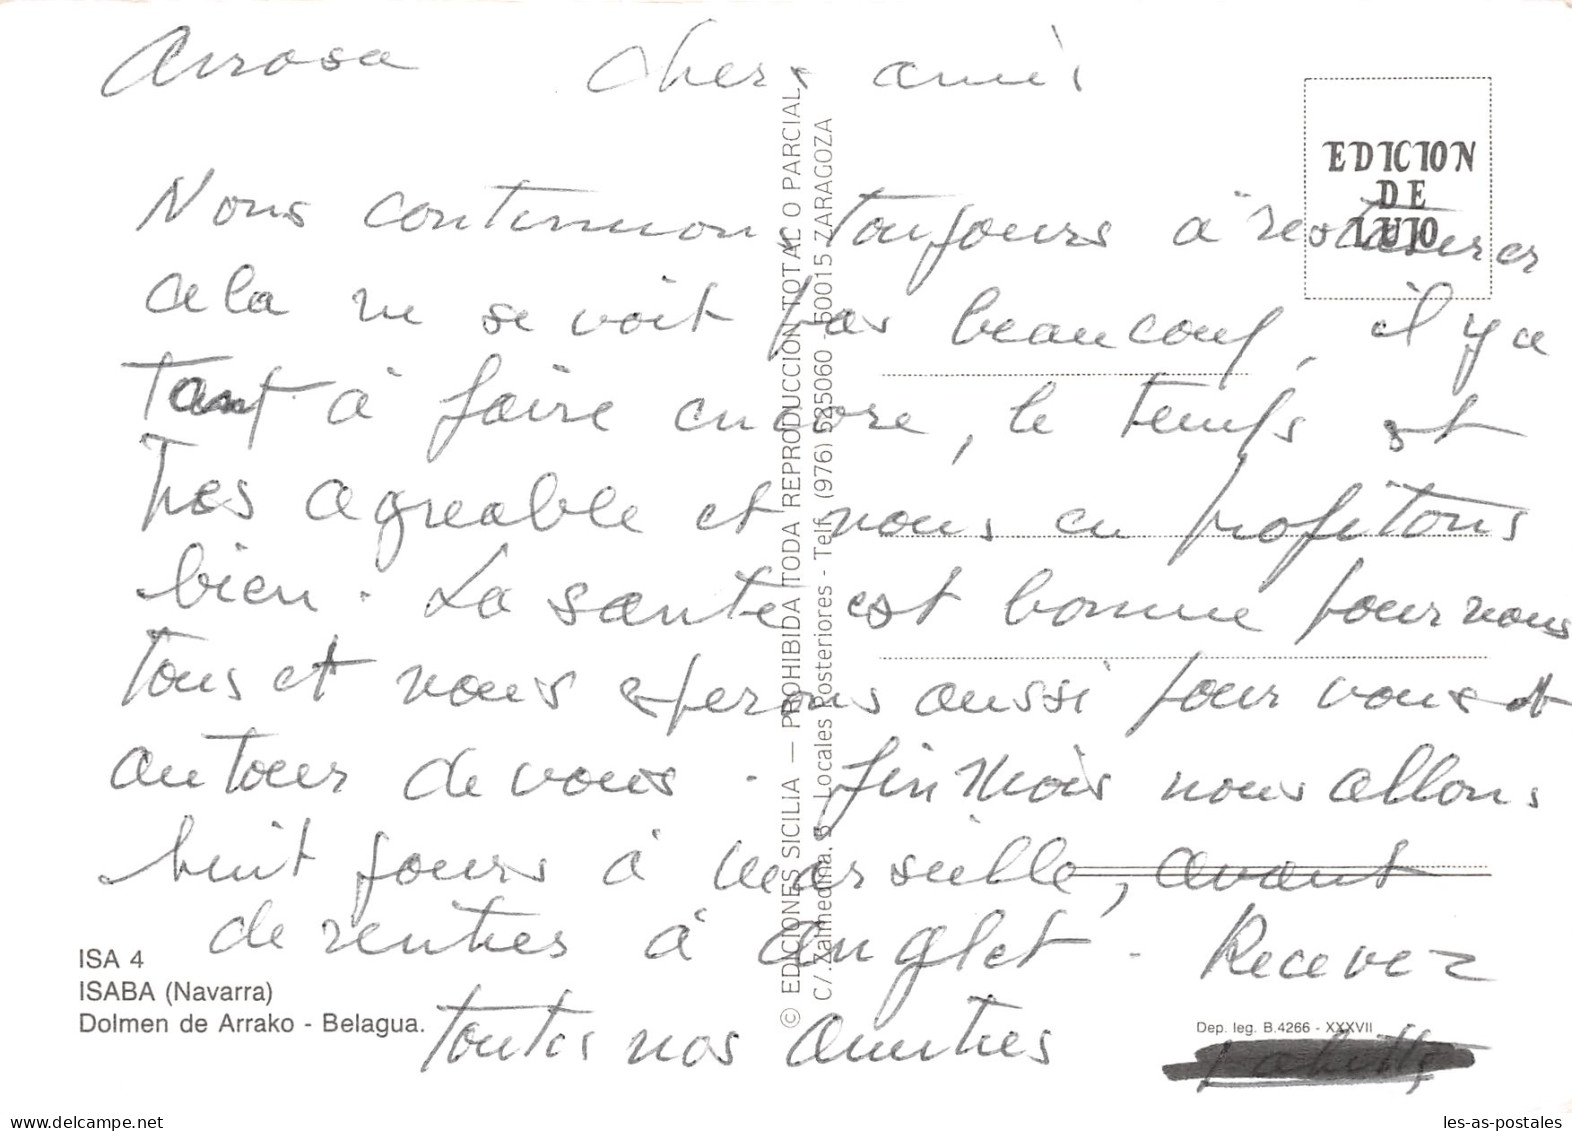 Arrosa Chers amis
EDICION
DE
LUJO
Nous continuons toujours à restaurer
cela ne se voit pas beaucoup, il y a
Tant à faire encore, le temps est
Tres agreable et nous en profitons
bien. La santé est bonne pour nous
tous et nous esperons aussi pour vous et
autour de vous. fin mois nous allons
huit jours à Marseille, avant
de rentrer à Anglet. Recevez
toutes nos amities
ISA 4
ISABA (Navarra)
Dolmen de Arrako - Belagua.
© EDICIONES SICILIA — PROHIBIDA TODA REPRODUCCION TOTAL O PARCIAL
C/. Zalmedina, 5 Locales Posteriores - Telf. (976) 525060 - 50015 ZARAGOZA
Dep. leg. B.4266 - XXXVII
les-as-postales